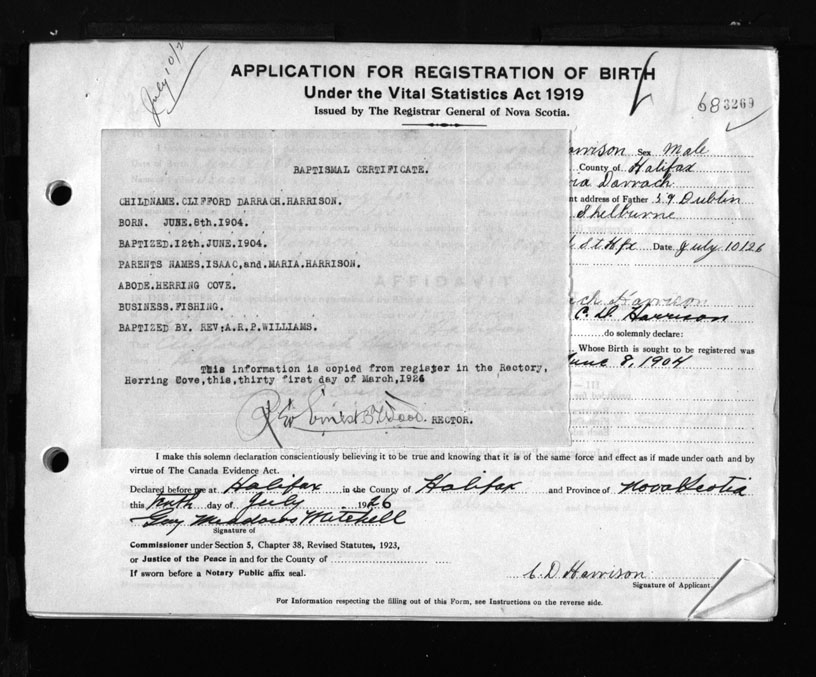 July 10/2
APPLICATION FOR REGISTRATION OF BIRTH
Under the Vital Statistics Act 1919
Issued by The Registrar General of Nova Scotia.
683269
BAPTISMAL CERTIFICATE.
CHILDNAME.CLIFFORD DARRACH.HARRISON.
BORN. JUNE.8th.1904.
BAPTIZED.12th.JUNE.1904.
PARENTS NAMES.ISAAC,and.MARIA.HARRISON.
ABODE.HERRING COVE.
BUSINESS.FISHING.
BAPTIZED BY. REV:A.R.P.WILLIAMS.
This information is copied from register in the Rectory,
Herring Cove,this,thirty first day of March,1926
Ernest B Wood RECTOR.
rrison Sex Male
County of Halifax
ria Darrach
nt address of Father 59 Dublin
Shelburne
Date July 10 1926
Harrison
C. D Harrison
do solemnly declare:
Whose Birth is sought to be registered was
June 8, 1904
AFFIDAVIT
I make this solemn declaration conscientiously believing it to be true and knowing that it is of the same force and effect as if made under oath and by
virtue of The Canada Evidence Act.
Declared before me at Halifax in the County of Halifax and Province of Nova Scotia
this tenth day of July 1926
Guy Meadows Mitchell
Signature of
Commissioner under Section 5, Chapter 38, Revised Statutes, 1923,
or Justice of the Peace in and for the County of
If sworn before a Notary Public affix seal.
C. D Harrison
Signature of Applicant
For Information respecting the filling out of this Form, see Instructions on the reverse side.